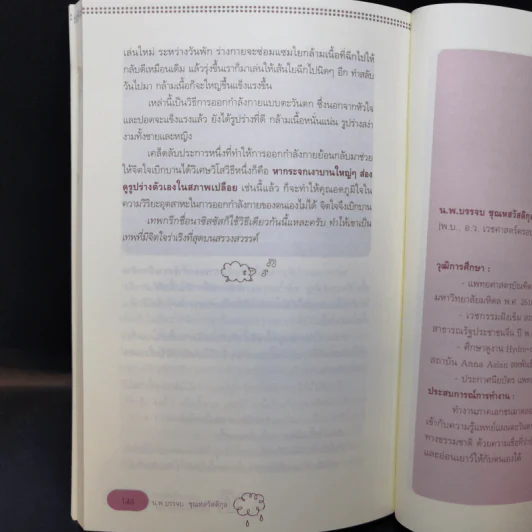 เล่นใหม่ ระหว่างวันพัก ร่างกายจะซ่อมแซมใยกล้ามเนื้อที่ฉีกไปให้
กลับดีเหมือนเดิม แล้วรุ่งขึ้นเราก็มาเล่นให้เส้นใยฉีกไปนิดๆ อีก ทำสลับ
วันไปมา กล้ามเนื้อก็จะใหญ่ขึ้นแข็งแรงขึ้น
เหล่านี้เป็นวิธีการออกกำลังกายแบบตะวันตก ซึ่งนอกจากหัวใจ
และปอดจะแข็งแรงแล้ว ยังได้รูปร่างที่ดี กล้ามเนื้อหนั่นแน่น รูปร่างสง่า
งามทั้งชายและหญิง
เคล็ดลับประการหนึ่งที่ทำให้การออกกำลังกายย้อนกลับมาช่วย
ให้จิตใจเบิกบานได้วิเศษวิโสวิธีหนึ่งก็คือ หากระจกเงาบานใหญ่ๆ ส่อง
ดูรูปร่างตัวเองในสภาพเปลือย เช่นนี้แล้ว ก็จะทำให้คุณอดภูมิใจใน
ความวิริยะอุตสาหะในการออกกำลังกายของตนเองไม่ได้ จิตใจจึงเบิกบาน
เทพกรีกชื่อนาซิสซัสก็ใช้วิธีเดียวกันนี้แหละครับ ทำให้เขาเป็น
เทพที่มีจิตใจร่าเริงที่สุดบนสรวงสวรรค์
น.พ.บรรจบ ชุณหสวัสดิกุล
น.พ.บรรจบ ชุณหสวัสดิกุล
(พ.บ., อ.ว. เวชศาสตร์ครอบ
วุฒิการศึกษา :
- แพทยศาสตรบัณฑิต
มหาวิทยาลัยมหิดล พ.ศ.
- เวชกรรมฝังเข็ม
สาธารณรัฐประชาชนจีน ปี
- ศึกษาดูงาน
สถาบัน Anna Aslan
- ประกาศนียบัตร
ประสบการณ์การทำงาน :
เข้ากับความรู้แพทย์แผนตะวันตก
ทางธรรมชาติ ด้วยความเชื่อที่ว่า